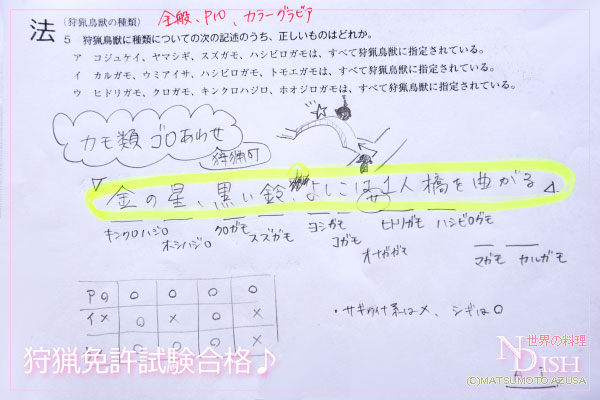 法
(狩猟鳥獣の種類)
全般、P10、カラーグラビア
5 狩猟鳥獣に種類についての次の記述のうち、正しいものはどれか。
ア コジュケイ、ヤマシギ、スズガモ、ハシビロガモは、すべて狩猟鳥獣に指定されている。
イ カルガモ、ウミアイサ、ハシビロガモ、トモエガモは、すべて狩猟鳥獣に指定されている。
ウ ヒドリガモ、クロガモ、キンクロハジロ、ホオジロガモは、すべて狩猟鳥獣に指定されている。
カモ類 ゴロあわせ
狩猟可
金の星、黒い鈴、よしこは1人 橋を曲がる
キンクロハジロ
ホシハジロ
クロガモ
スズガモ
ヨシガモ
コガモ
オナガガモ
ヒドリガモ
ハシビロガモ
マガモ
カルガモ
アの ○ ○ ○ ○
イ× ○ × ○ ×
・サギのけ系は×、シギは○
狩猟免許試験合格♪
世界の料理
NDISH
(C)MATSUMOTO AZUSA